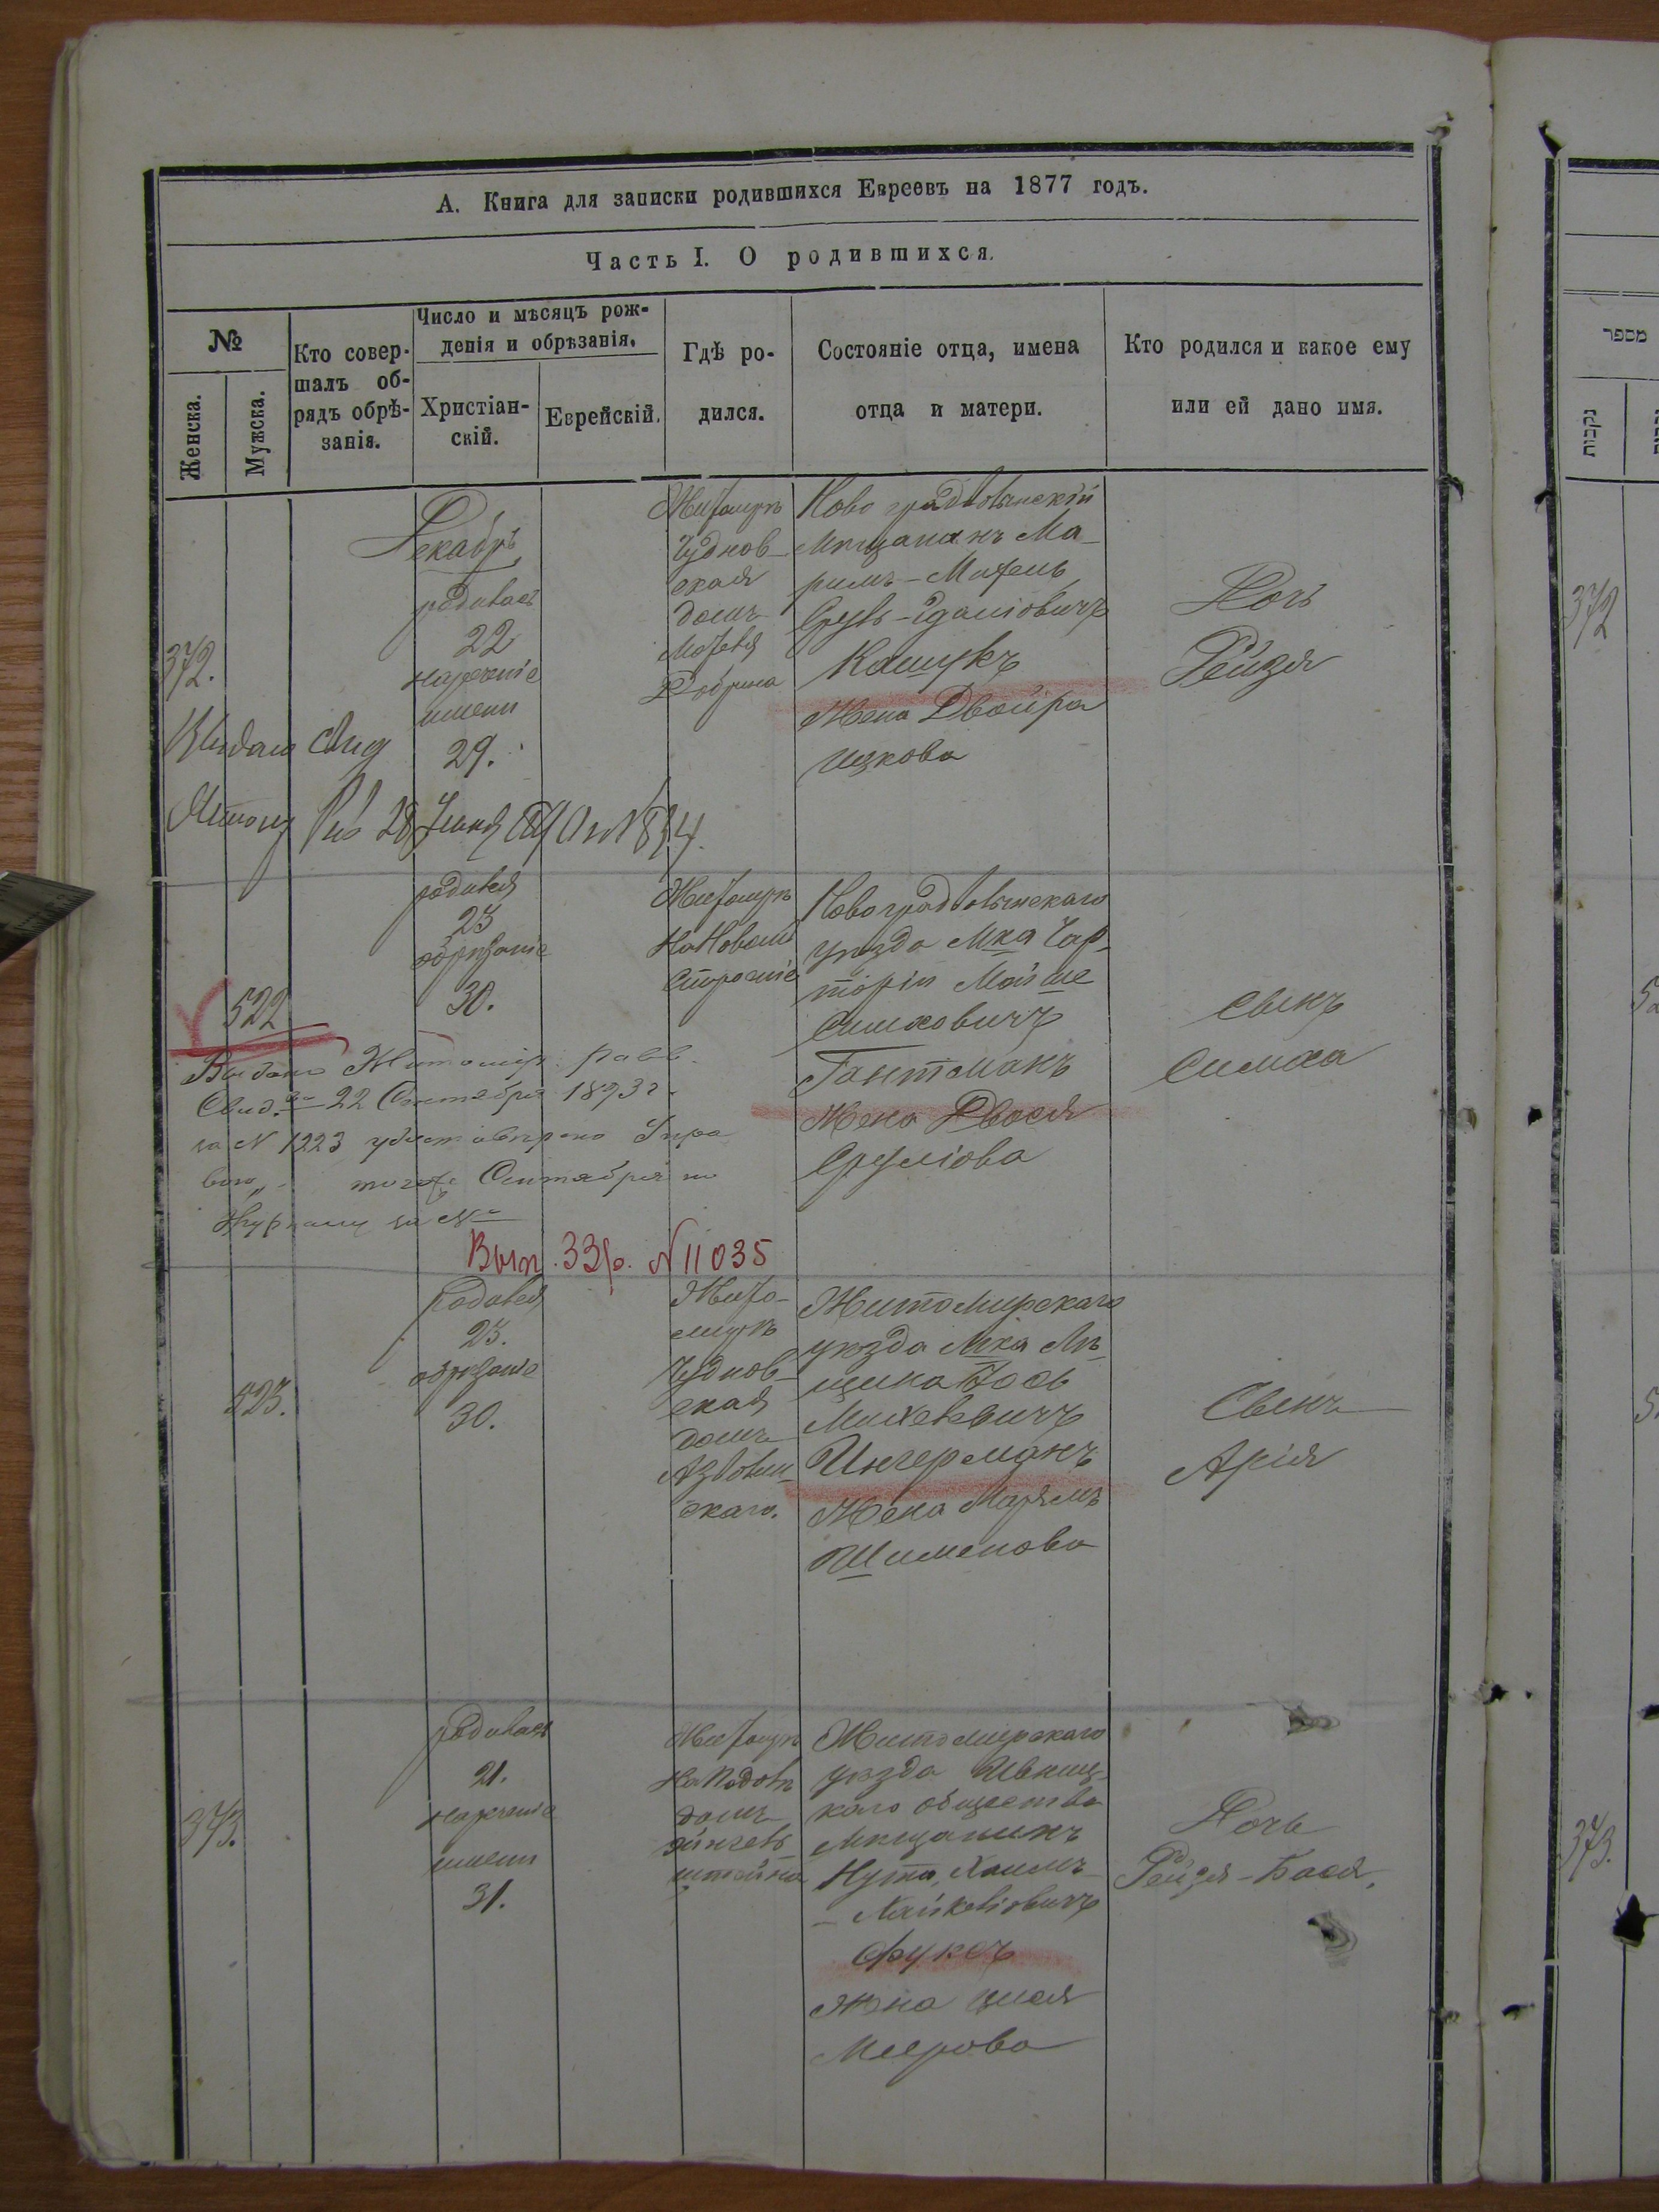 А. Книга для записки родившихся Евреевъ на 1877 годъ.
Часть I. О родившихся.
№
Женска.
Мужска.
Кто совер-
шалъ об-
рядъ обрѣ-
занія.
Число и мѣсяцъ рож-
денія и обрѣзанія.
Христіан-
скій.
Еврейскій.
Гдѣ ро-
дился.
Состояніе отца, имена
отца и матери.
Кто родился и какое ему
или ей дано имя.
372.
Декабрь
родилась
22
нареченіе
имени
29.
Житомиръ
Чуднов-
ская
домъ
Добрина
Ново градволынскій
Мѣщанинъ Ма-
Кашукъ
Жена Двойра
Ицкова
Дочь
Рейзя
Выдано
28
522
родился
23
обрѣзаніе
30.
Житомиръ
На Новомъ
Строеніе
Новоградволынскаго
уѣзда Мка Чар-
торіи Мойше
Симховичъ
Гантманъ
Жена Двося
Срулiова
Сынъ
Симха
Выдано Житомір. Равв.
Свид. 22 Сентября 1893 г.
за N 1223
тогоже Сентября по
Журналу за №
Вып. 33 N 11035
523.
родился
23.
обрѣзаніе
30.
Жито-
миръ
Чуднов-
ская
домъ
скаго.
Житомирскаго
уѣзда Мка Лѣ-
щина Іось
Михелевичъ
Ингерманъ
Жена Марямъ
Шименова
Сынъ
Арія
373.
родилась
21.
нареченіе
имени
31.
Житомиръ
домъ
штейна
Житомирскаго
уѣзда Ивниц-
каго общества
Мѣщанинъ
Нута, Хаимъ-
- Хайкелiовичъ
Фуксъ
Жена Цися
Меерова
Дочь
Рейзя-Бася.
מספר
נקבות
372
373.